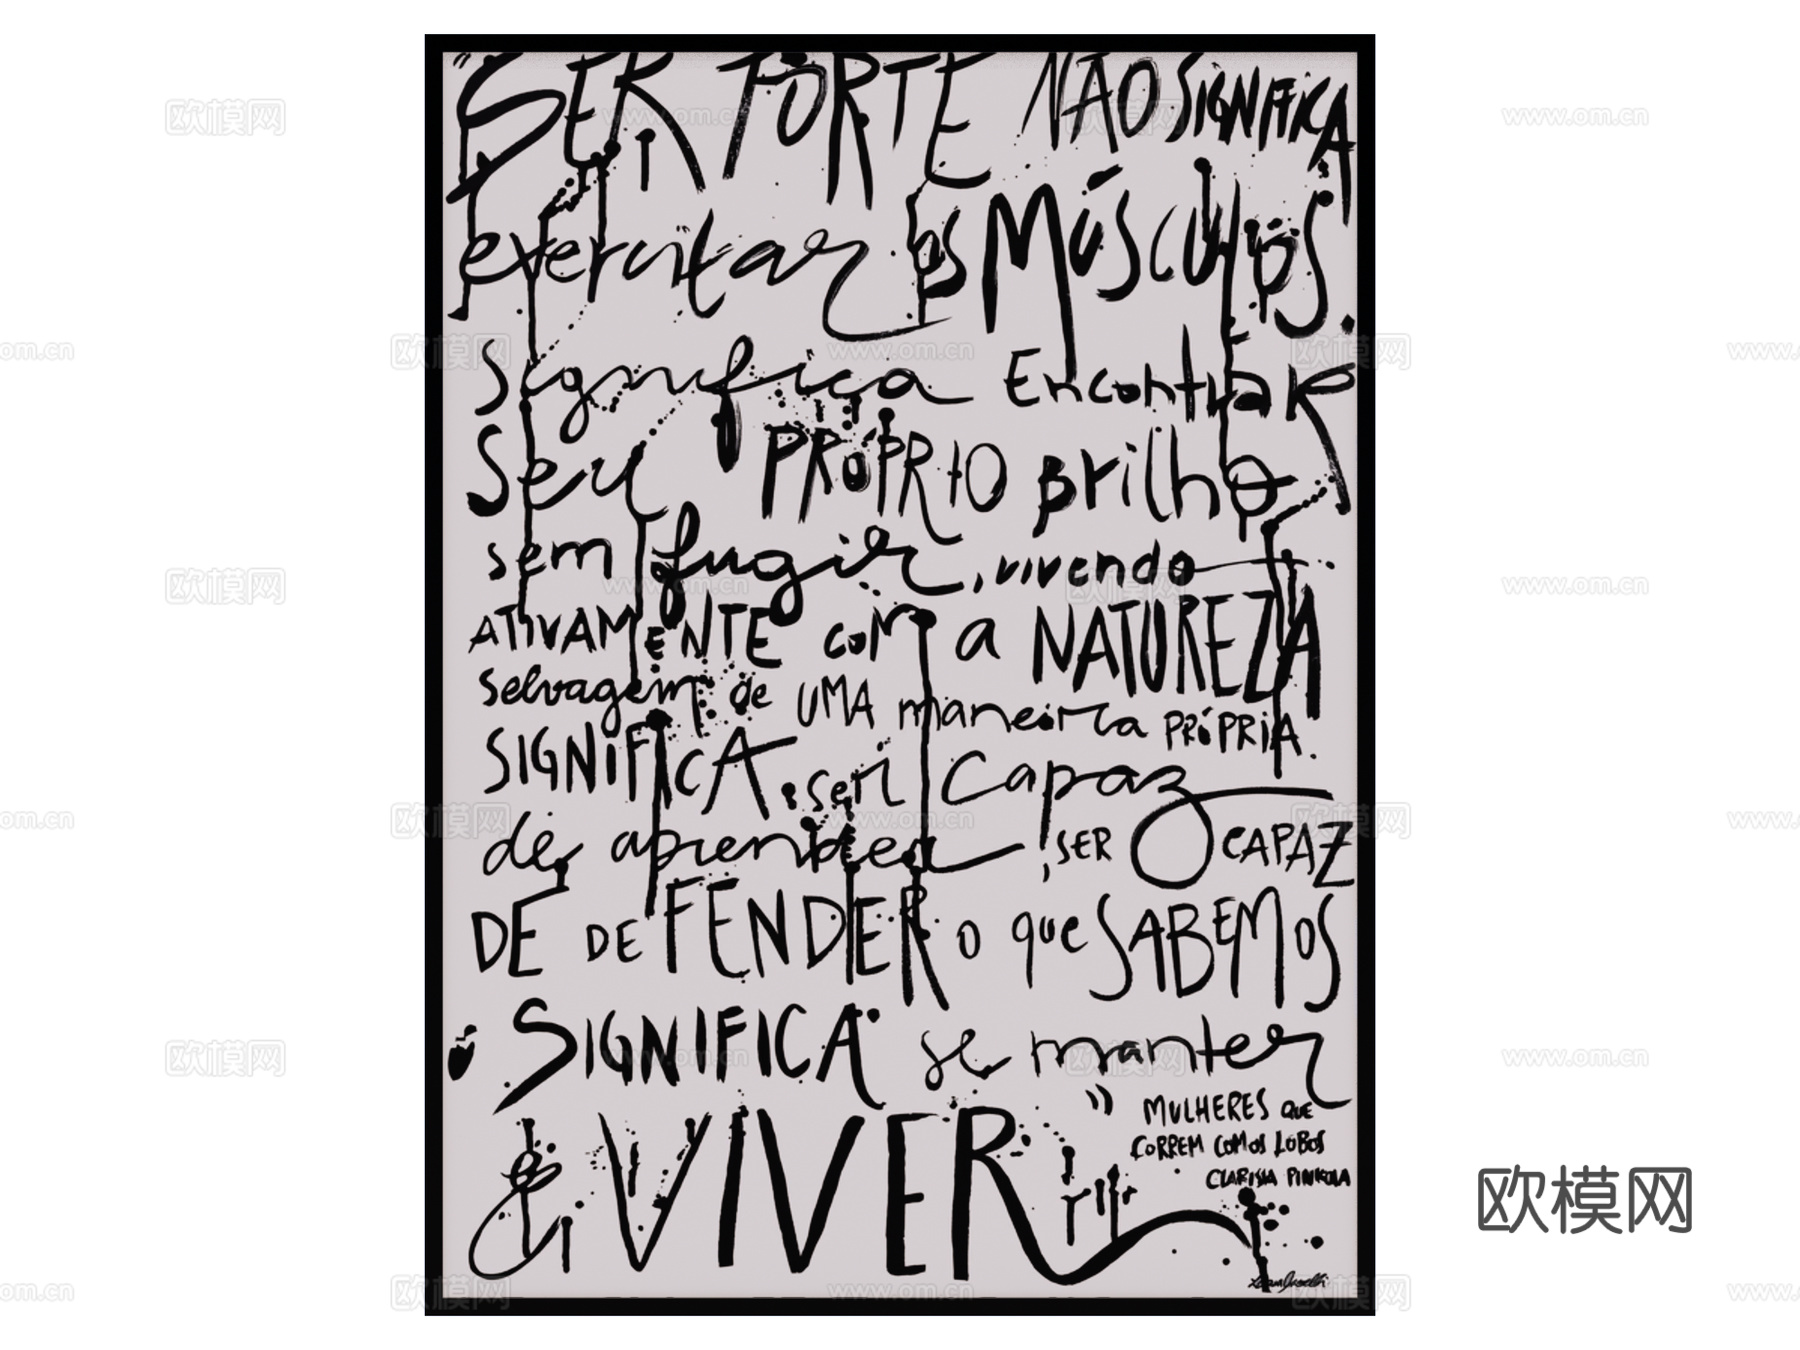 "SER FORTE NÃO SIGNIFICA
exercitar os MÚSCULOS.
Significa Encontrar
Seu PRÓPRIO brilho
sem fugir, vivendo
ATIVAMENTE com a NATUREZA
selvagem de UMA maneira PRÓPRIA.
SIGNIFICA ser capaz
de aprender, SER CAPAZ
DE DEFENDER o que SABEMOS
SIGNIFICA se manter
& VIVER"
MULHERES QUE
CORREM COM OS LOBOS
CLARISSA PINKOLA
欧模网
www.om.cn